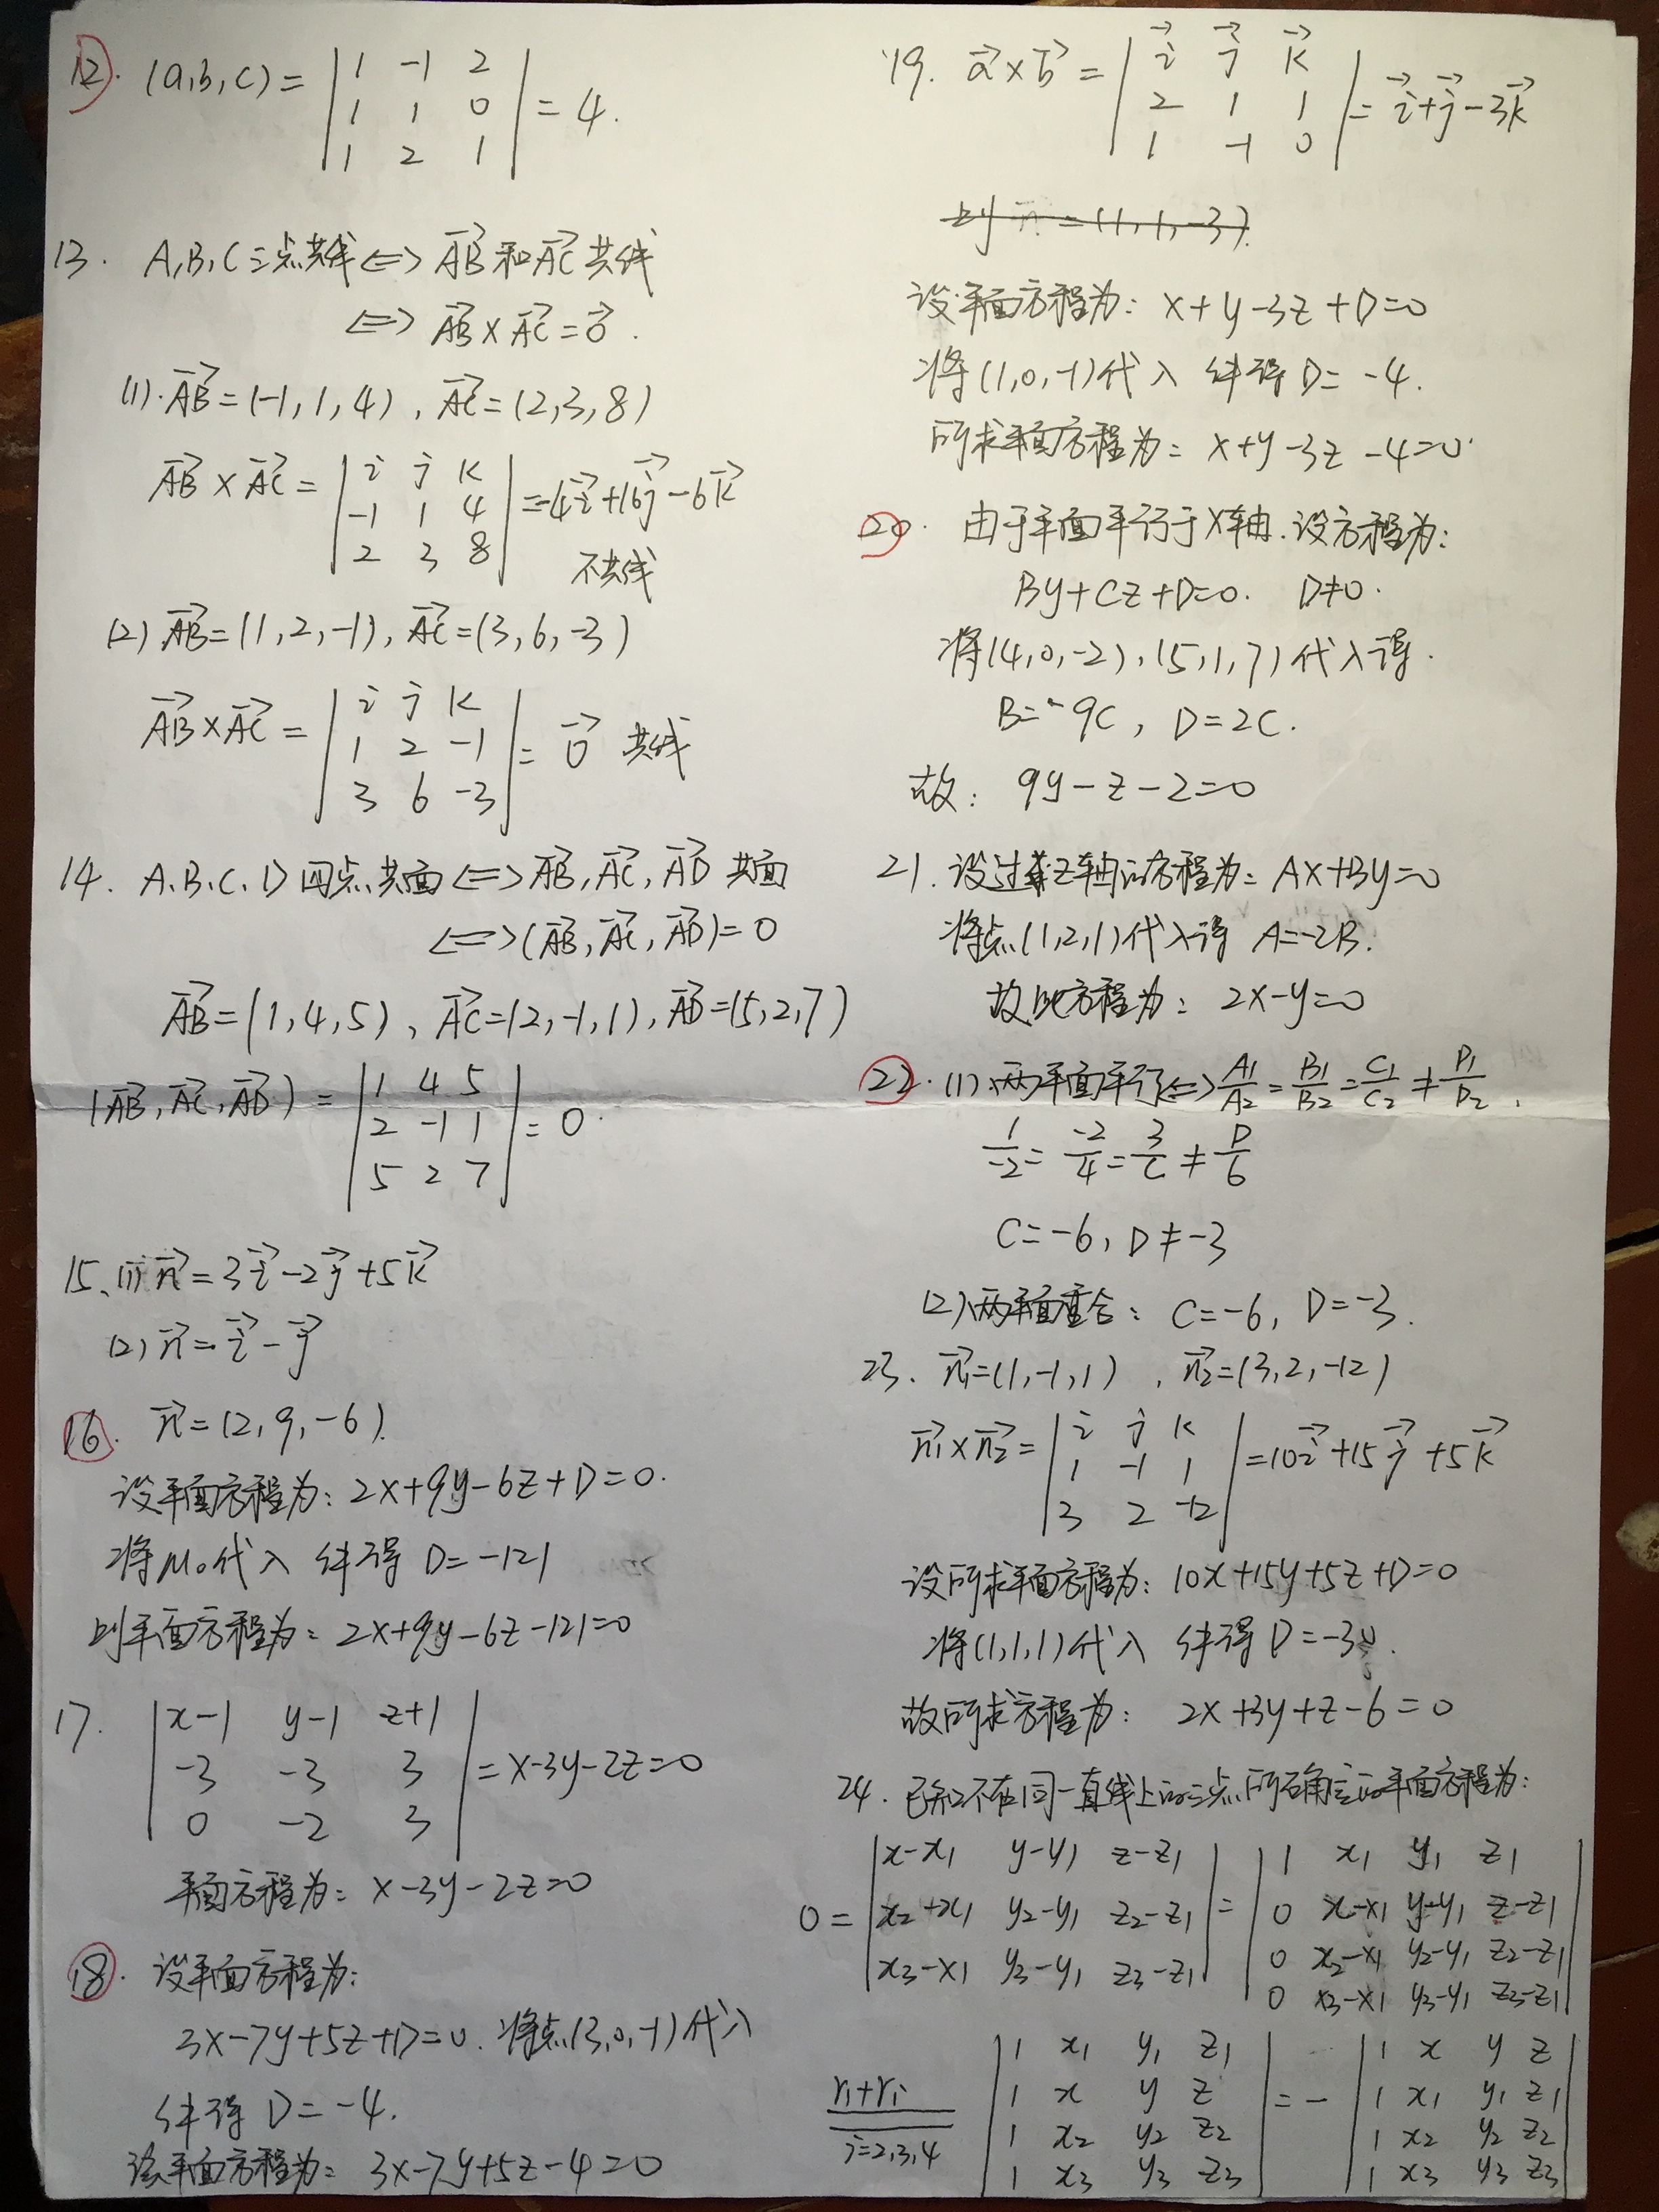 12. (a,b,c) = | 1 -1 2 |
| 1 1 0 | = 4.
| 1 2 1 |
13. A,B,C三点共线 <=> AB→和AC→共线
<=> AB→×AC→=0→.
(1). AB→=(-1,1,4), AC→=(2,3,8)
AB→×AC→= | i j k |
| -1 1 4 | =-4i→+16j→-6k→
| 2 3 8 | 不共线
(2) AB→=(1,2,-1), AC→=(3,6,-3)
AB→×AC→= | i j k |
| 1 2 -1 | = 0→ 共线
| 3 6 -3 |
14. A、B、C、D四点共面 <=> AB→, AC→, AD→ 共面
<=> (AB→, AC→, AD→)=0
AB→=(1,4,5), AC→=(2,-1,1), AD→=(5,2,7)
(AB→, AC→, AD→) = | 1 4 5 |
| 2 -1 1 | = 0.
| 5 2 7 |
15. (1) n→=3i→-2j→+5k→
(2) n→=i→-j→
16. n→=(2,9,-6).
设平面方程为: 2x+9y-6z+D=0.
将M₀代入 解得 D=-121
则平面方程为: 2x+9y-6z-121=0
17. | x-1 y-1 z+1 |
| -3 -3 3 | = x-3y-2z=0
| 0 -2 3 |
平面方程为: x-3y-2z=0
18. 设平面方程为:
3x-7y+5z+D=0. 将点(3,0,-1)代入
解得 D=-4.
该平面方程为: 3x-7y+5z-4=0
19. a→×b→ = | i→ j→ k→ |
| 2 1 1 | = i→+j→-3k→
| 1 -1 0 |
则 n→=(1,1,-3).
设平面方程为: x+y-3z+D=0
将(1,0,-1)代入 解得 D=-4.
所求平面方程为: x+y-3z-4=0.
20. 由于平面平行于X轴. 设方程为:
By+Cz+D=0. D≠0.
将(4,0,-2), (5,1,7)代入得.
B=-9C, D=2C.
故: 9y-z-2=0
21. 设过Z轴的方程为: Ax+By=0
将点(1,2,1)代入得 A=-2B.
故此方程为: 2x-y=0
22. (1)、两平面平行 <=> A₁/A₂=B₁/B₂=C₁/C₂≠D₁/D₂.
1/-2=-2/4=3/C≠D/6
C=-6, D≠-3
(2)、两平面重合: C=-6, D=-3.
23. n₁→=(1,-1,1), n₂→=(3,2,-12)
n₁→×n₂→= | i j k |
| 1 -1 1 | =10i→+15j→+5k→
| 3 2 -12 |
设所求平面方程为: 10x+15y+5z+D=0
将(1,1,1)代入 解得 D=-30.
故所求方程为: 2x+3y+z-6=0
24. 已知不在同一直线上的三点所确定的平面方程为:
| x-x₁ y-y₁ z-z₁ | | 1 x₁ y₁ z₁ |
0 = | x₂-x₁ y₂-y₁ z₂-z₁ | = | 0 x-x₁ y-y₁ z-z₁ |
| x₃-x₁ y₃-y₁ z₃-z₁ | | 0 x₂-x₁ y₂-y₁ z₂-z₁ |
| 0 x₃-x₁ y₃-y₁ z₃-z₁ |
| 1 x₁ y₁ z₁ | | 1 x y z |
r₁+rᵢ | 1 x y z | = - | 1 x₁ y₁ z₁ |
i=2,3,4 | 1 x₂ y₂ z₂ | | 1 x₂ y₂ z₂ |
| 1 x₃ y₃ z₃ | | 1 x₃ y₃ z₃ |